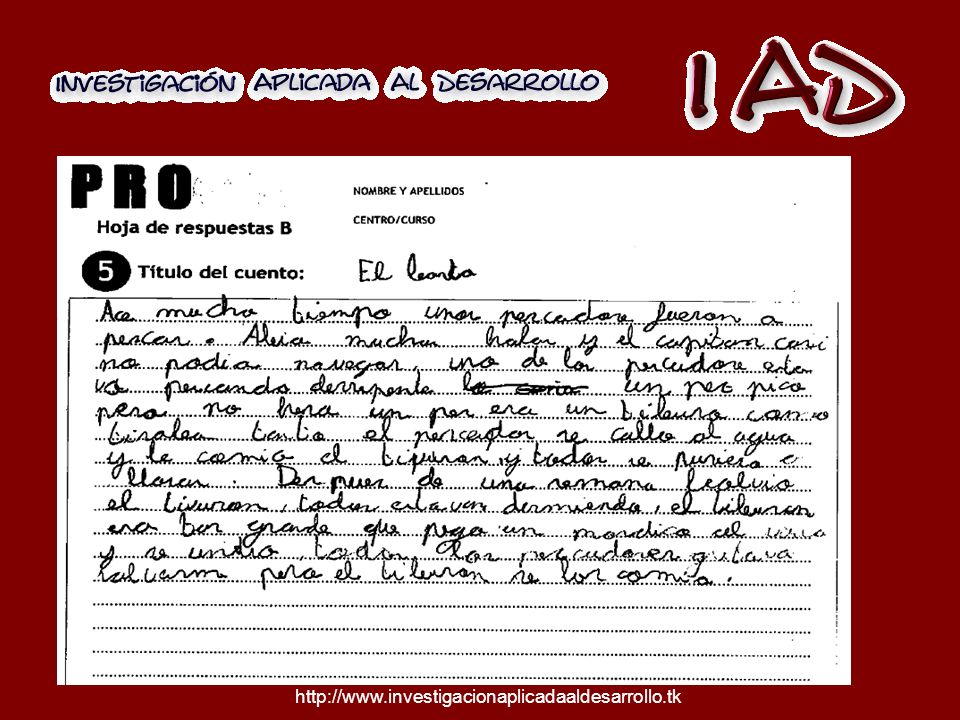 INVESTIGACIÓN APLICADA AL DESARROLLO
IAD
PRO
NOMBRE Y APELLIDOS
Hoja de respuestas B
CENTRO/CURSO
5 Título del cuento: El
Ace mucho tiempo unos pescadore fueron a
pescar. Abia muchas holas y el capitan casi
no podia navegar, uno de los pescadore esta
va pescando derrepente un pez pico
pero no hera un pez era un tiburo como
tiraba tanto el pescador se callo al agua
y le comio el tipuron y todos se pusiero a
lloran. Despues de una semana
el tivuron, todos estavan dermiendo, el tiburon
era tan grande que pego un mordico al
y se undio todos los pescadores gritava
salvarme pero el tiburon se los comia.
http://www.investigacionaplicadaaldesarrollo.tk